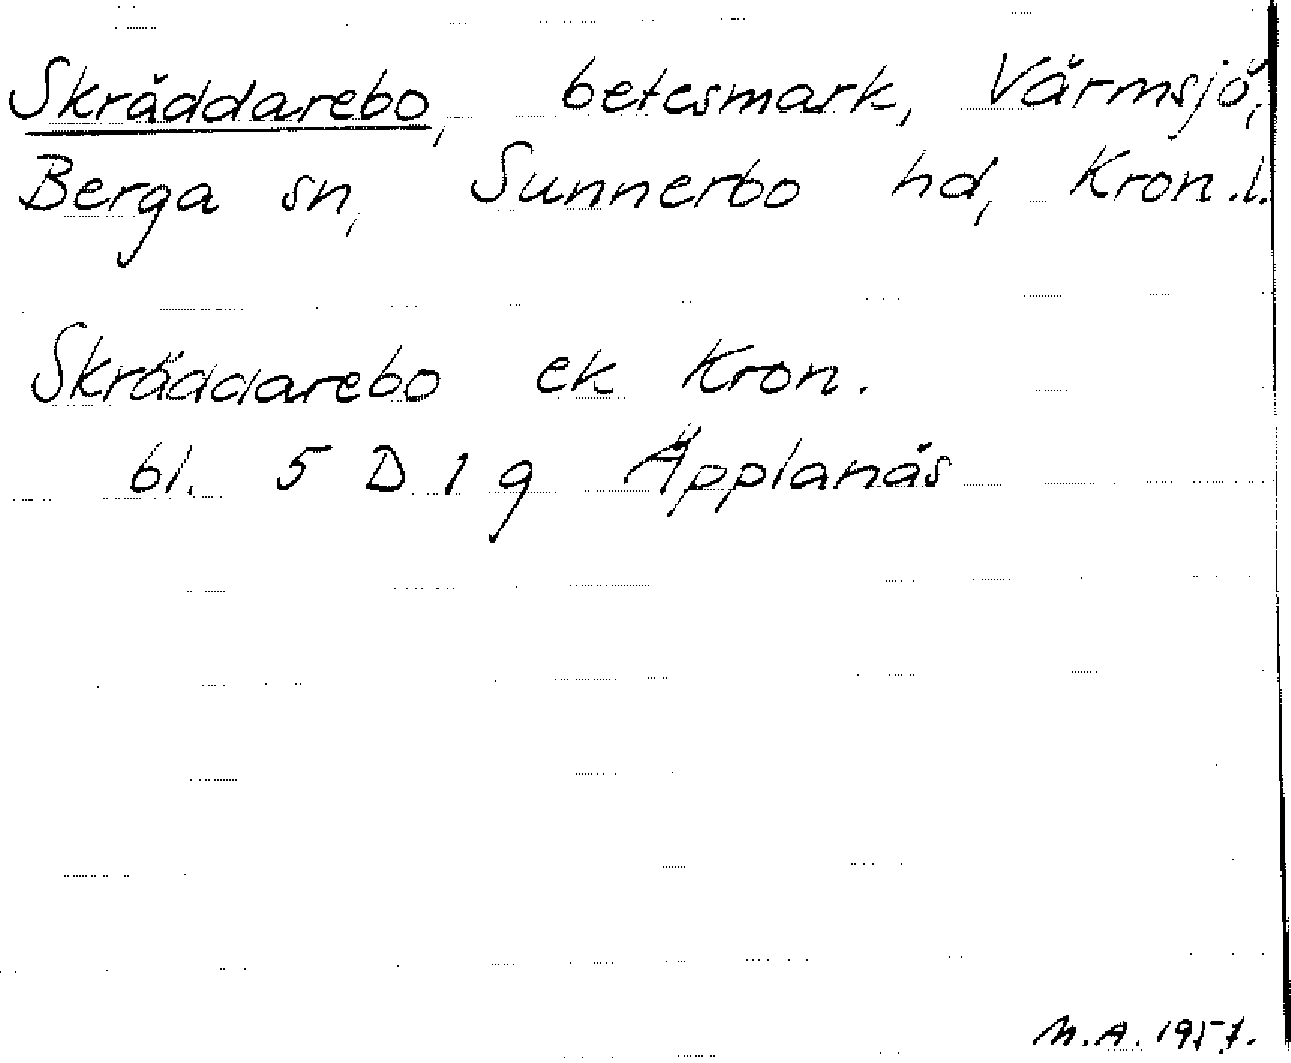 Skräddarebo, betesmark, Värmsjö,
Berga sn, Sunnerbo hd, Kron.l.
Skräddarebo ek Kron.
bl. 5 D 1 g Äpplanäs
M.A. 1957.